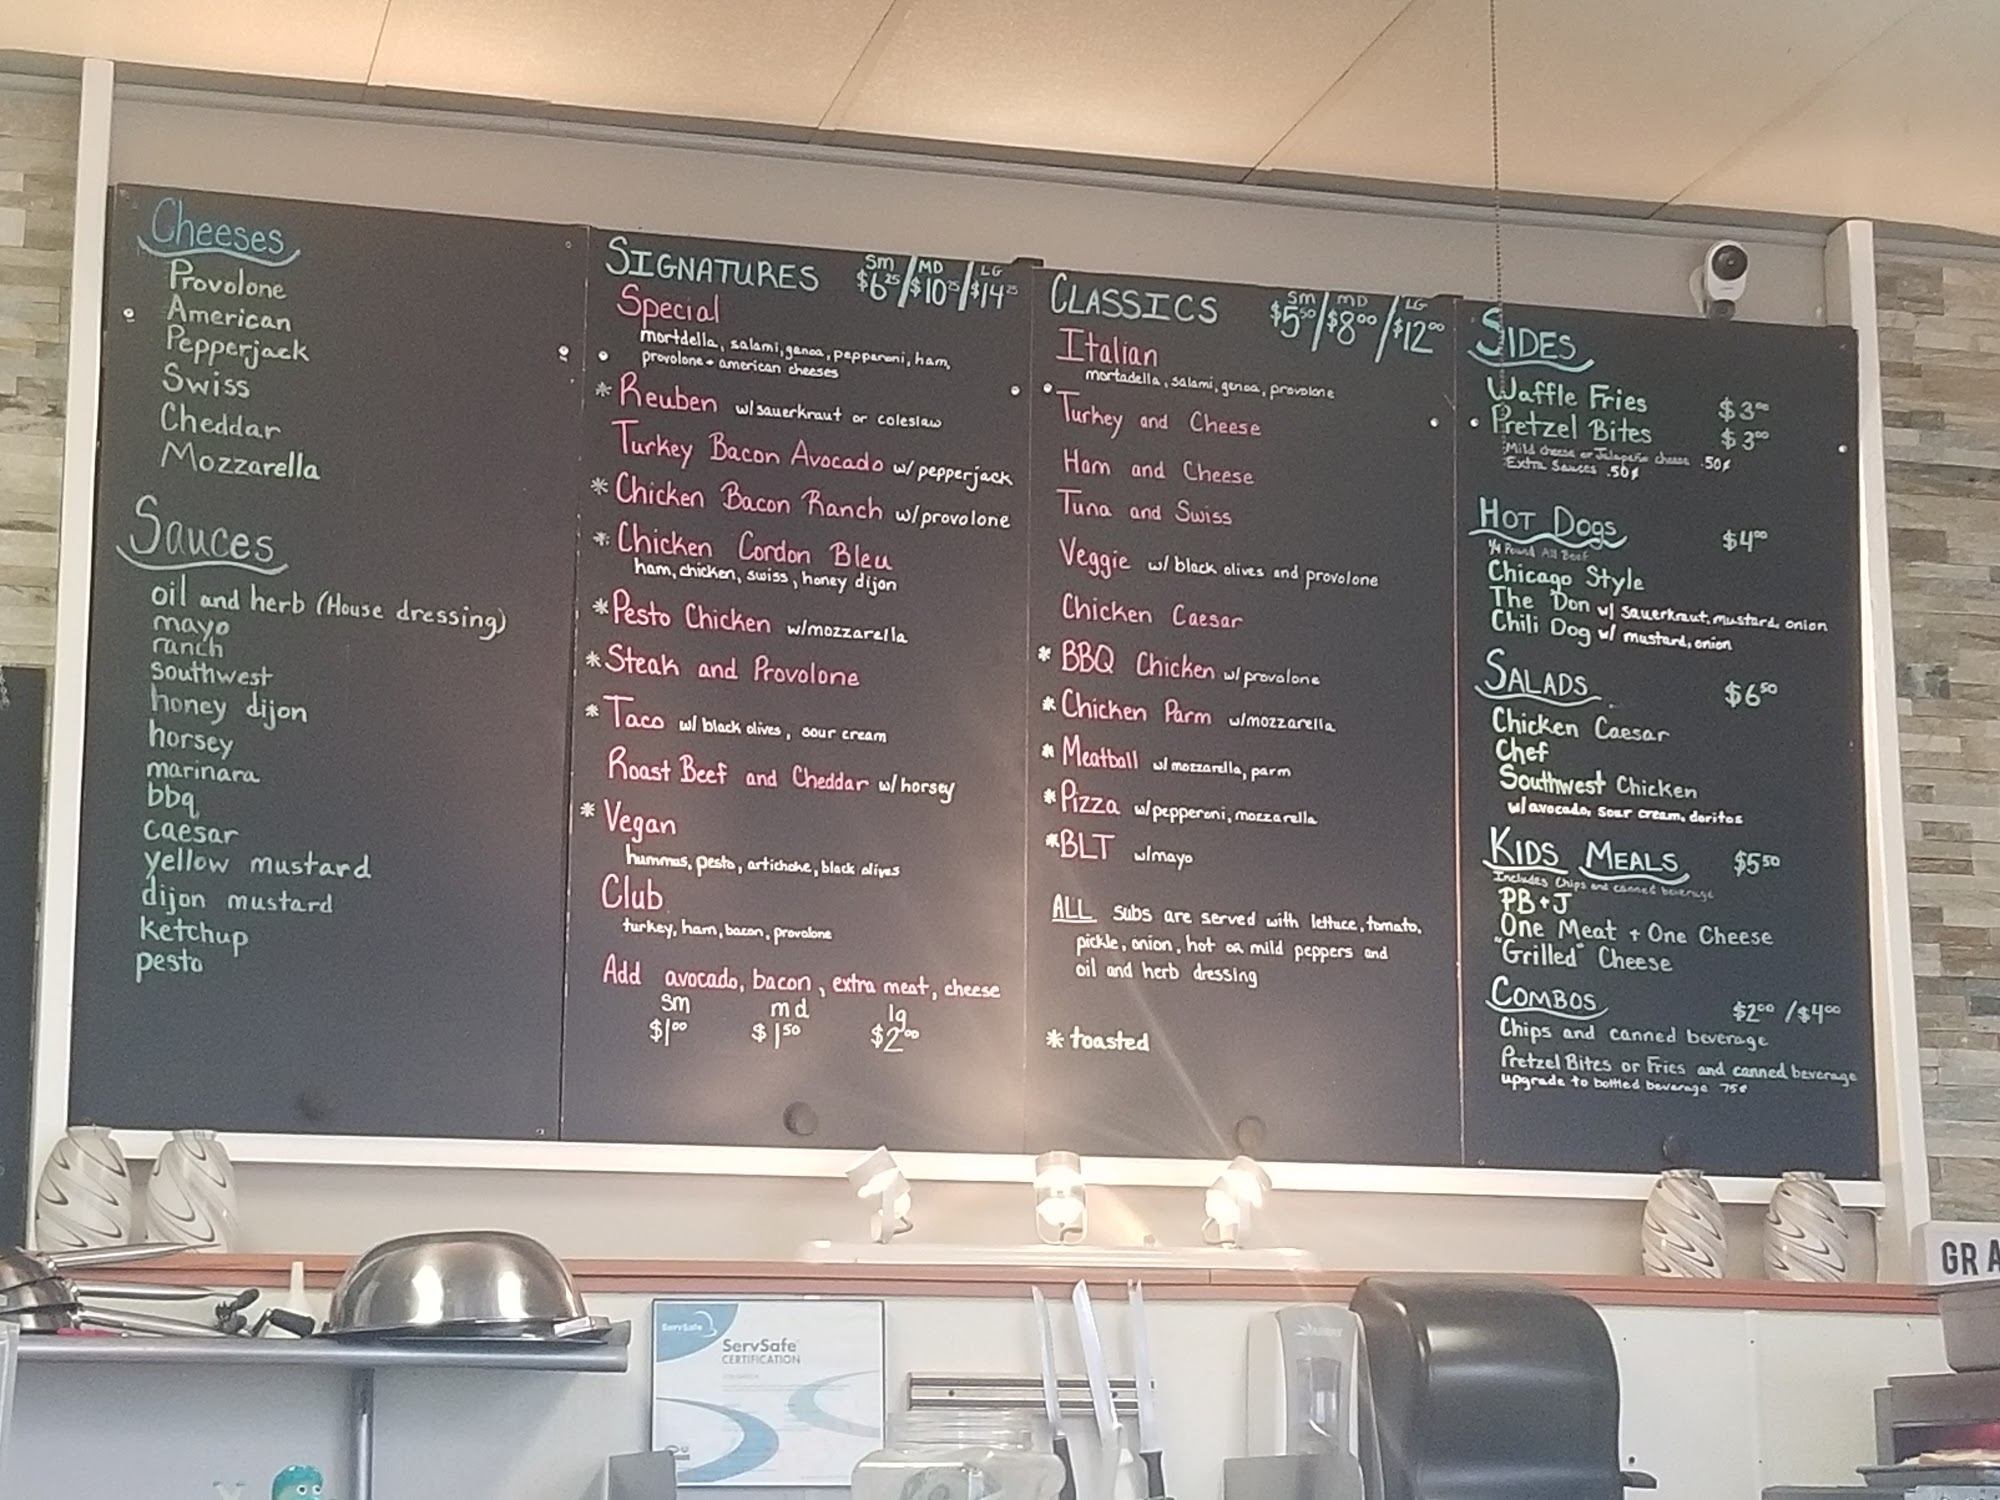 Cheeses
Provolone
American
Pepperjack
Swiss
Cheddar
Mozzarella
Sauces
oil and herb (House dressing)
mayo
ranch
southwest
honey dijon
horsey
marinara
bbq
caesar
yellow mustard
dijon mustard
ketchup
pesto
SIGNATURES sm MD LG
$6²⁵/$10²⁵/$14²⁵
Special
mortdella, salami, genoa, pepperoni, ham,
provolone + american cheeses
* Reuben w/sauerkraut or coleslaw
Turkey Bacon Avocado w/pepperjack
* Chicken Bacon Ranch w/provolone
* Chicken Cordon Bleu
ham, chicken, swiss, honey dijon
* Pesto Chicken w/mozzarella
* Steak and Provolone
* Taco w/ black olives, sour cream
Roast Beef and Cheddar w/horsey
* Vegan
hummus, pesto, artichoke, black olives
Club
turkey, ham, bacon, provolone
Add avocado, bacon, extra meat, cheese
sm md lg
$1⁰⁰ $1⁵⁰ $2⁰⁰
CLASSICS sm MD LG
$5⁵⁰/$8⁰⁰/$12⁰⁰
Italian
mortadella, salami, genoa, provolone
Turkey and Cheese
Ham and Cheese
Tuna and Swiss
Veggie w/ black olives and provolone
Chicken Caesar
* BBQ Chicken w/provolone
* Chicken Parm w/mozzarella
* Meatball w/mozzarella, parm
* Pizza w/pepperoni, mozzarella
* BLT w/mayo
ALL subs are served with lettuce, tomato,
pickle, onion, hot or mild peppers and
oil and herb dressing
* toasted
SIDES
Waffle Fries $3⁰⁰
Pretzel Bites $3⁰⁰
Mild cheese or Jalapeño cheese .50¢
Extra Sauces .50¢
HOT DOGS $4⁰⁰
1/4 Pound All Beef
Chicago Style
The Don w/ Sauerkraut, mustard, onion
Chili Dog w/ mustard, onion
SALADS $6⁵⁰
Chicken Caesar
Chef
Southwest Chicken
w/avocado, sour cream, doritos
KIDS MEALS $5⁵⁰
Includes Chips and canned beverage
PB+J
One Meat + One Cheese
"Grilled" Cheese
COMBOS $2⁰⁰/$4⁰⁰
Chips and canned beverage
Pretzel Bites or Fries and canned beverage
upgrade to bottled beverage 75¢
GRA
ServSafe
ServSafe
CERTIFICATION